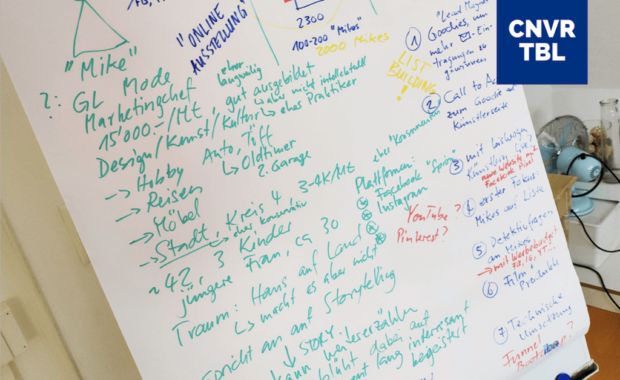 CNVR
TBL
"Mike"
"ONLINE
AUSSTELLUNG"
2300
100-200 "Mikes"
2000 Mikes
LIST
BUILDING!
?: GL Mode
Marketingchef
15'000.-/Mt, gut ausgebildet
Design/Kunst/Kultur
aber nicht intellektuell
eher Praktiker
→ Hobby Auto, Töff
↳ Oldtimer
2. Garage
→ Reisen
→ Möbel
→ Stadt, Kreis 4 3-4K/Mt
~42, 3 Kinder
jüngere Frau, ca 30
Traum: Haus auf Land
↳ macht es aber nicht
spricht an auf Storytelling
↓ STORY:
kann weitererzählen
blüht dabei auf
lang interessant
begeistert
eher "Konsument"
Plattformen:
Facebook
Instagram
YouTube?
Pinterest?
"Lead Magnet"
① Goodies, um
mehr Ein-
tragungen zu
gewinnen
② Call to Ac
zum Goodie auf
Künstlerseite
③ mit bisherigen
neue Website mit
Facebook Pixel
④ erster Fokus:
Mikes on Liste
⑤ Detektivfragen
an Mikes
→ mit Werbebudget
FB, IG, YT...
⑥ Film
Produkte
⑦ Technische
Umsetzung
Funnel
?